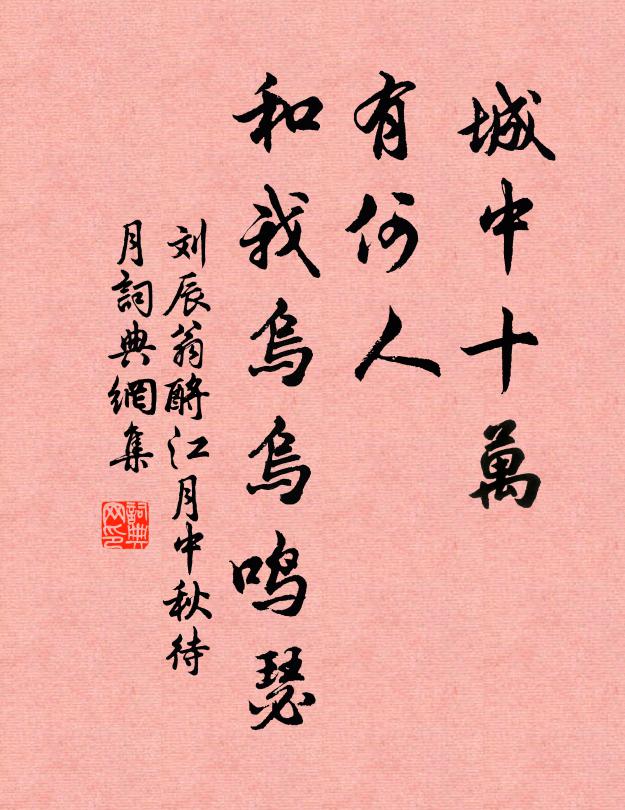 城中十萬
有何人
和我烏烏鳴瑟
刘辰翁酹江月中秋待
月詞典網集
詞典网印